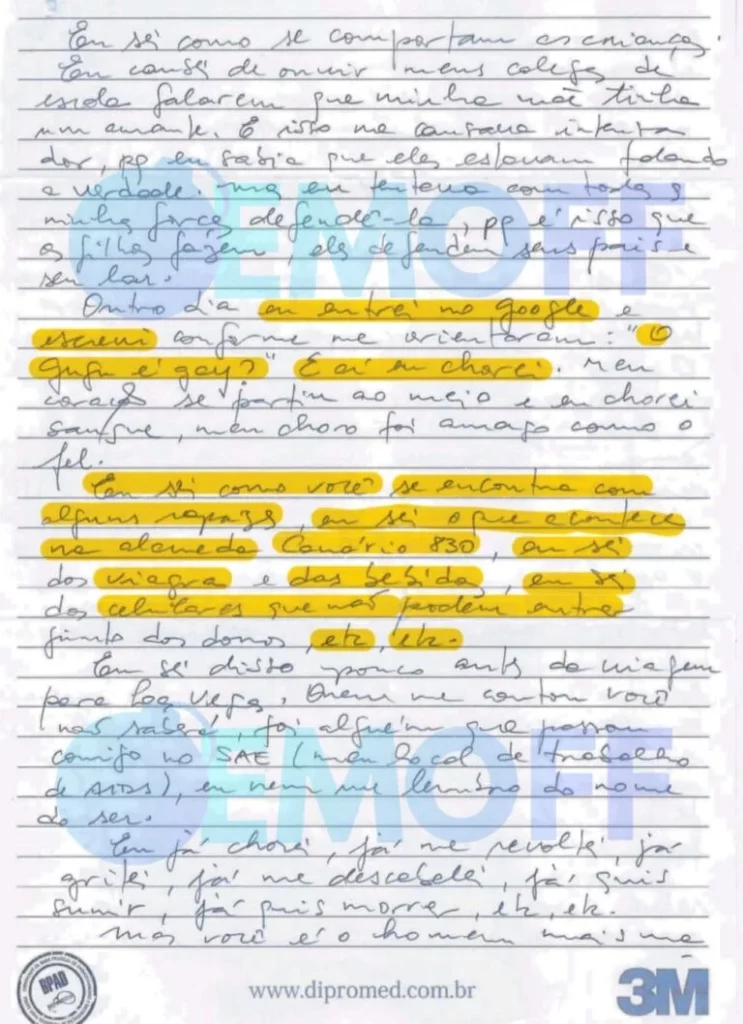 Eu sei como se comportam as crianças.
Eu cansei de ouvir meus colegas de
escola falarem que minha mãe tinha
um amante. E isso me causava intensa
dor, pq eu sabia que eles estavam falando
a verdade. mas eu tentava com todas as
minhas forças defendê-la, pq é isso que
os filhos fazem, eles defendem seus pais e
seu lar.
Outro dia eu entrei no google e
escrevi conforme me orientaram: "O
Gugu é gay?" E aí eu chorei. Meu
coração se partiu ao meio e eu chorei
sangue, meu choro foi amargo como o
fel.
Eu sei como você se encontra com
alguns rapazes, eu sei o que acontece
na alameda Canário 830, eu sei
dos viagra e das bebidas, eu sei
dos celulares que não podem entrar
junto dos donos, etc, etc.
Eu sei disso pouco antes da viagem
para Las Vegas. Quem me contou você
não saberá, foi alguém que passou
comigo no SAE (meu local de trabalho
de AIDS), eu nem me lembro do nome
do ser.
Eu já chorei, já me revoltei, já
gritei, já me descabelei, já quis
sumir, já quis morrer, etc, etc.
Mas você é o homem mais ma
EMOFF
EMOFF
BPAD
www.dipromed.com.br
3M